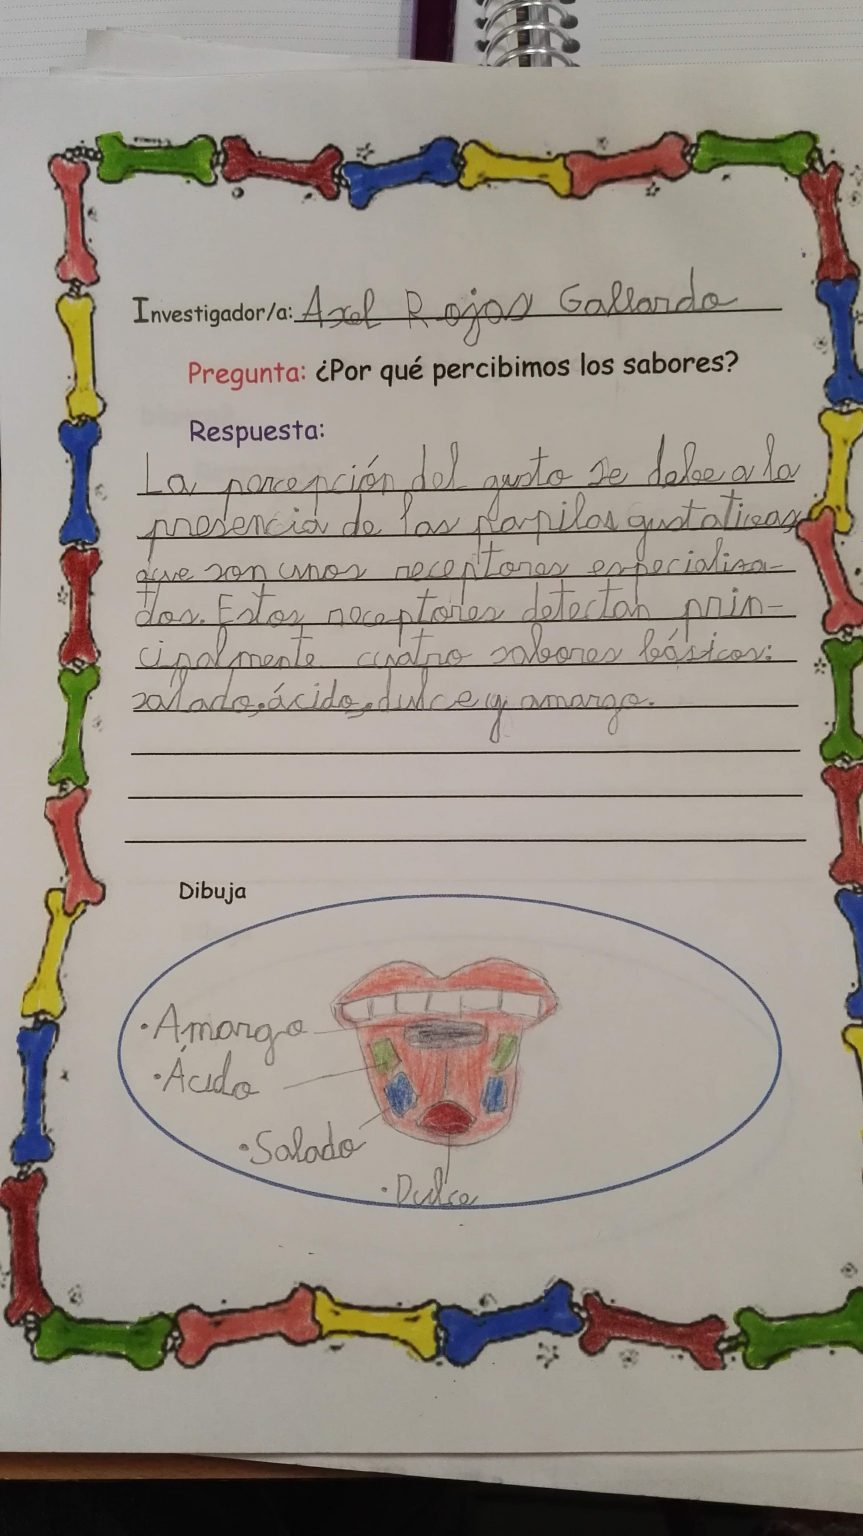 Investigador/a: Axel Rojas Gallardo
Pregunta: ¿Por qué percibimos los sabores?
Respuesta:
La percepción del gusto se debe a la
presencia de las papilas gustativas
que son unos receptores especializa-
dos. Estos receptores detectan prin-
cipalmente cuatro sabores básicos:
salado, ácido, dulce y amargo.
Dibuja
·Amargo
·Ácido
·Salado
·Dulce